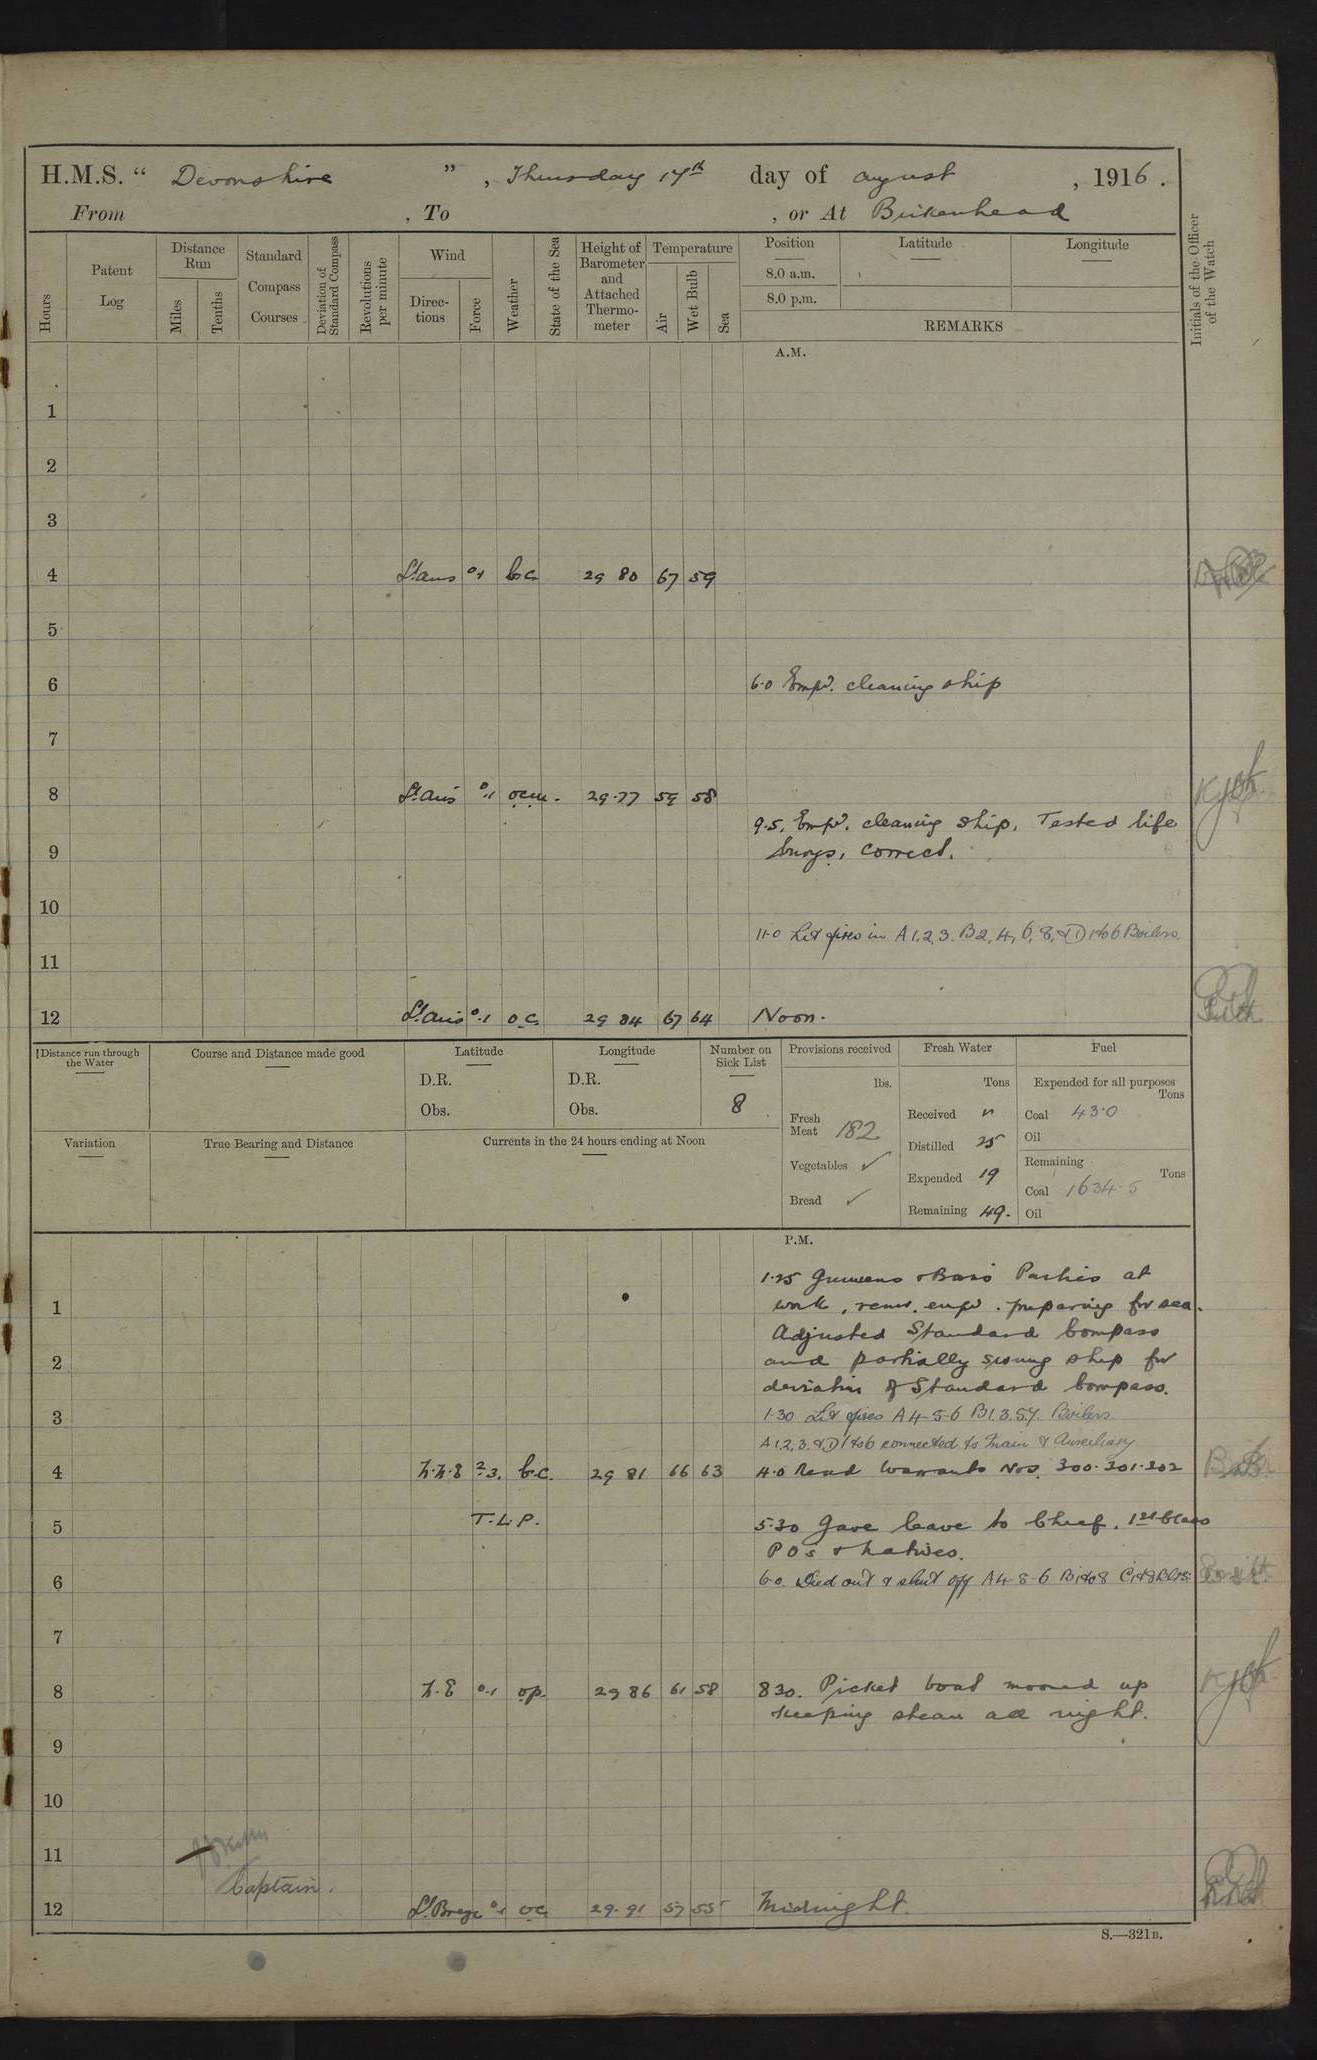 H.M.S. “ Devonshire ” , Thursday 17th day of August , 1916 .
From , To , or At Birkenhead
Hours
Patent Log
Distance Run
Miles
Tenths
Standard Compass Courses
Deviation of Standard Compass
Revolutions per minute
Wind
Directions
Force
Weather
State of the Sea
Height of Barometer and Attached Thermometer
Temperature
Air
Wet Bulb
Sea
Position
8.0 a.m.
8.0 p.m.
Latitude
Longitude
REMARKS
Initials of the Officer of the Watch
A.M.
1
2
3
4 Lt airs 0.1 b.c. 29 80 67 59
5
6 6.0 Empd. cleaning ship
7
8 Lt airs 0.1 ocm. 29.77 59 58
9.5. Empd. cleaning ship. Tested life
9 buoys, correct.
10
11.0 Lit fires in A 1,2,3. B 2, 4, 6, 8, & D 1 to 6 Boilers
11
12 Lt airs 0.1 o.c. 29 84 67 64 Noon.
Distance run through the Water
Course and Distance made good
Latitude
D.R.
Obs.
Longitude
D.R.
Obs.
Number on Sick List
8
Variation
True Bearing and Distance
Currents in the 24 hours ending at Noon
Provisions received
lbs.
Fresh Meat 182
Vegetables ✓
Bread ✓
Fresh Water
Tons
Received
Distilled 25
Expended 19
Remaining 49.
Fuel
Expended for all purposes
Tons
Coal 43.0
Oil
Remaining
Tons
Coal 1634.5
Oil
P.M.
1.25 Gunners & Bosns Parties at
1 work, remr. empd. preparing for sea.
Adjusted Standard Compass
2 and partially swung ship for
deviation of Standard Compass.
3 1.30 Lit fires A 4-5-6 B 1.3.5.7. Boilers
A 1,2,3. & D 1 to 6 connected to Main & Auxiliary
4 N.N.E 2-3. b.c. 29 81 66 63 4.0 Read Warrants Nos. 300.301.302
T.L.P.
5 5.30 Gave leave to Chief, 1st Class
POs & natives.
6 6.0 Died out & shut off A 4-5-6 B 1 to 8
7
8 N.E 0.1 op. 29 86 61 58 830. Picket boat moored up
keeping steam all night.
9
10
11
Captain.
12 Lt Breze 0.1 oc. 29.91 57 55 Midnight.
S.—321B.